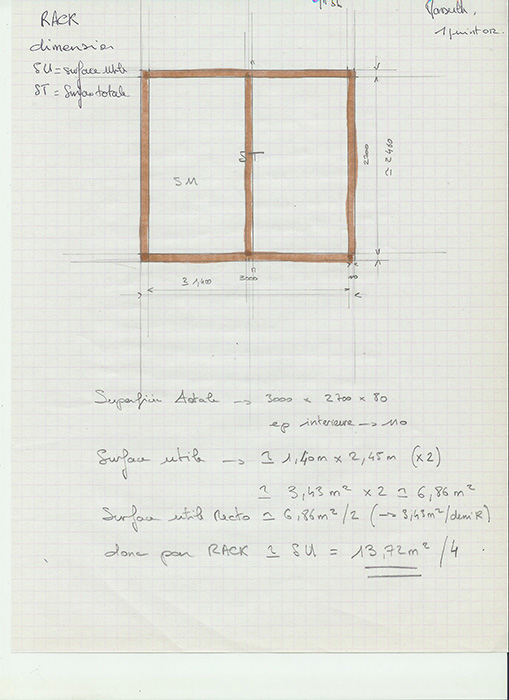 RACK
dimension
SU = surface utile
ST = Surface totale
1 print or.
2700
≃ 2 450
ST
SU
≃ 1,400
3000
110
Superficie totale → 3000 x 2700 x 80
ep interieure → 110
Surface utile → ≃ 1,40m x 2,45m (x2)
≃ 3,43m² x 2 ≃ 6,86m²
Surface util Recto ≃ 6,86m²/2 (→ 3,43m²/demi R)
donc par RACK ≃ SU = 13,72m²/4